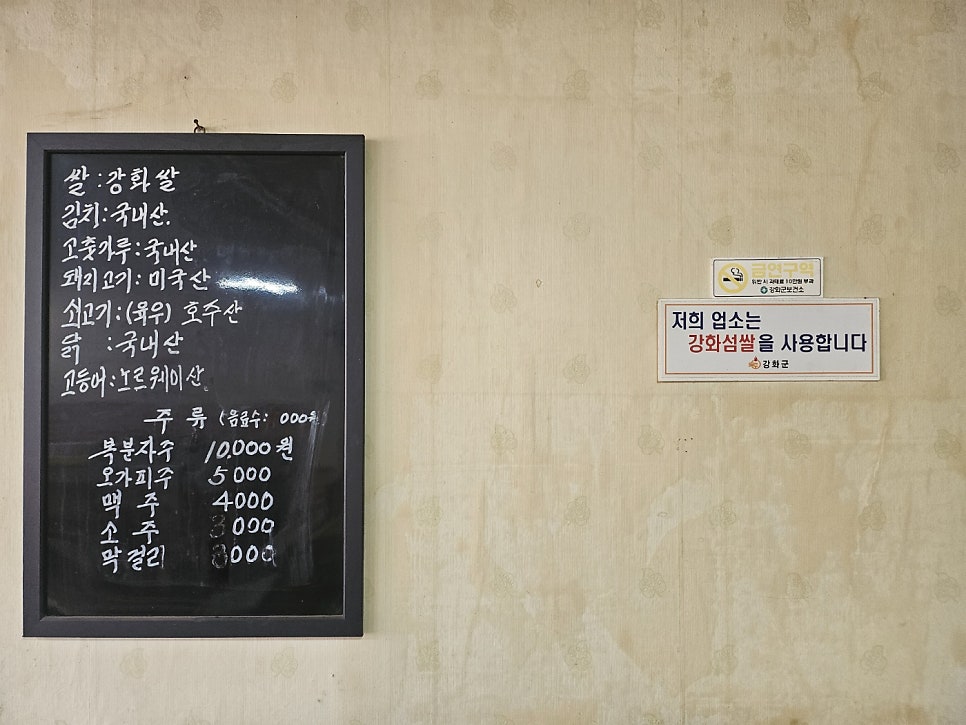 쌀 : 강화쌀
김치 : 국내산.
고춧가루 : 국내산
돼지고기 : 미국산
쇠고기 : (육우) 호주산
닭 : 국내산
고등어 : 노르웨이산
주 류 (음료수: 000원)
복분자주 10,000원
오가피주 5000
맥 주 4000
소 주 3000
막걸리 000
금연구역
위반 시 과태료 10만원 부과
강화군보건소
저희 업소는
강화섬쌀을 사용합니다
강화군